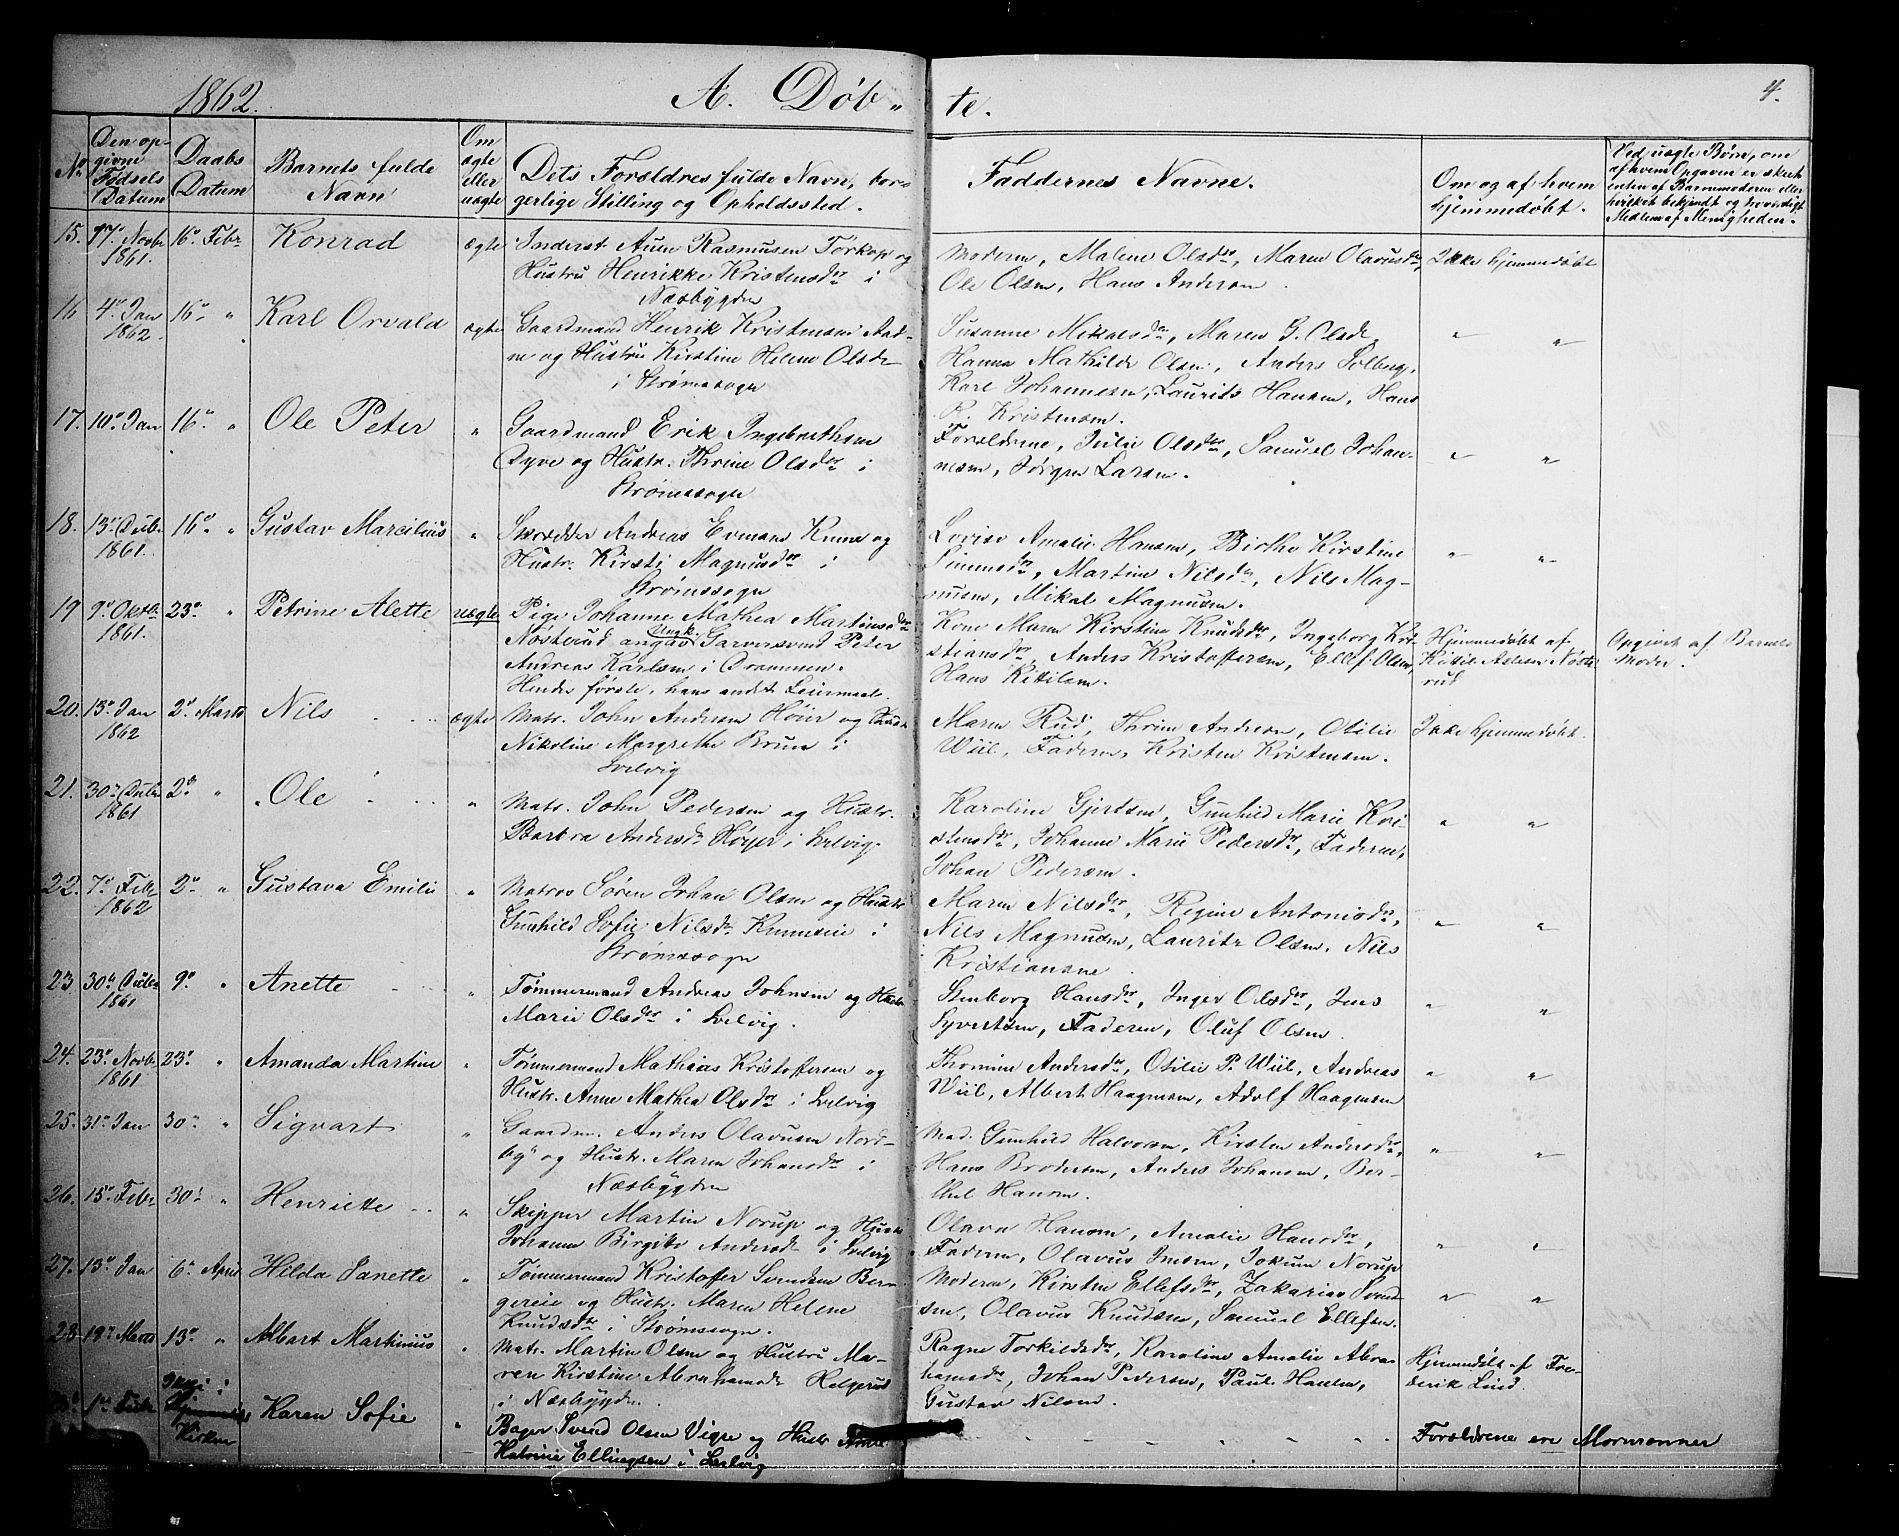 1862.
A. Døb„
te.
4.
No
Den op-
givne
Fødsels
Datum
Daabs
Datum
Barnets fulde
Navn
Om
ægte
eller
uægte
Dets Forældres fulde Navn, bor-
gerlige Stilling og Opholdssted.
Faddernes Navne.
Om og af hvem
hjemmedøbt.
Ved uægte Børn, om
af hvem Opgaven er skeet
enten af Barnemoderen eller
hvilket bekjendt og troværdigt
Medlem af Menigheden.
15. 17de Novbr 1861. 16de Febr Konrad ægte
Inderst Auen Rasmusen Torkop og
Hustru Henrikke Kristensdr i
Næsbygden
Moderen, Malene Olsdr, Maren Olavusdr,
Ole Olsen, Hans Andersen
Ikke hjemmedøbt
16 4de Jan 1862. 16de „ Karl Orvald ægte
Gaardmand Henrik Kristensen
og Hustru Kirstine Helene Olsdr
i Strømssogn
Susanne Mikkelsdr, Maren G. Olsdr
Hanna Mathilde Olsen, Anders Solberg,
Karl Johannesen, Laurits Hansen, Hans
R. Kristensen.
„ „
17. 10de Jan 16de „ Ole Peter „
Gaardmand Erik Ingebrethsen
og Hustr. Thrine Olsdr i
Strømssogn
Forældrene, Julie Olsdr, Samuel Johan-
nesen, Jørgen Larsen.
„ „
18. 13de Decbr 1861. 16de „ Gustav Marcilius „
Skrædder Andreas Evensen Knive og
Hustr. Kirsti Magnusdr i
Strømssogn
Lovise Amalie Hansen, Birthe Kirstine
Simensdr, Martine Nilsdr, Nils Mag-
nusen, Mikal Magnusen.
„ „
19 9de Oktbr 1861. 23de „ Petrine Alette uægte
Pige Johanne Mathea Martinsdr
Nøsterud angav Ungk. Garversvend Peter
Andreas Karlsen i Drammen.
Hendes første, hans andet Leiermaal.
Kone Maren Kirstine Knudsdr, Ingeborg Kri-
stiansdr, Anders Kristoffersen, Ellef Olsen,
Hans Kittilsen.
Hjemmedøbt af
Kittil Nøste-
rud
Opgivet af Barnets
Moder.
20. 13de Jan 1862 2de Marts Nils ægte
Matr. John Andersen Høier og Hustr
Nikoline Margrethe Brun i
Svelvig
Maren Rud, Thrine Andersen, Otilie
Wiil, Faderen, Kristen Kristensen.
Ikke hjemmedøbt.
21. 30de Decbr 1861 2de „ Ole „
Matr. John Pedersen og Hustr.
Barbra Andersdr Høyer i Svelvig.
Karoline Gjertsen, Gunhild Marie Kri-
stensdr, Johanne Marie Pedersdr, Faderen,
Johan Pedersen.
„ „
22. 7de Febr 1862 2de „ Gustava Emilie „
Matros Søren Johan Olsen og Hustr
Gunhild Sofie Nilsdr Kniveeie i
Strømssogn
Maren Nilsdr, Regine Antonisdr,
Nils Magnusen, Lauritz Olsen, Nils
Kristiansen
„ „
23 30de Decbr 1861 9de „ Anette „
Tømmermand Andreas Johnsen og Hustr
Marie Olsdr i Svelvig.
Stenborg Hansdr, Inger Olsdr, Jens
Syvertsen, Faderen, Oluf Olsen
„ „
24. 23de Novbr 1861 23de „ Amanda Martine „
Tømmermand Mathias Kristoffersen og
Hustr. Anne Mathea Olsdr i Svelvig
Thomine Andersdr, Otilie P. Wiil, Andreas
Wiil, Albert Haagensen, Adolf Haagensen
„ „
25. 31te Jan 30te „ Sigvart „
Gaardm. Anders Olavusen Nord-
by og Hustr. Maren Johansdr i
Næsbygden
Mad. Gunhild Halvorsen, Kirsten Andersdr,
Hans Brodersen, Anders Johansen, Ber-
thel Hansen.
„ „
26. 15de Febr 30te „ Henriette „
Skipper Martin Norup og Hustr
Johanne Birgitte Andersdr i Svelvig
Olava Hansen, Amalie Hansdr,
Faderen, Olavus Jensen, Jokum Norup
„ „
27. 13de Jan 6te April Hilda Janette „
Tømmermand Kristoffer Svendsen Ber-
gereie og Hustr. Maren Helene
Knudsdr i Strømssogn.
Moderen, Kirsten Ellefsdr, Zakarias Svend-
sen, Olavus Knudsen, Samuel Ellefsen.
„ „
28 19de Marts 13de „ Albert Martinius „
Matr. Martin Olsen og Hustru Ma-
ren Kirstine Abrahamsdr Relgerud
i Næsbygden.
Ragne Torkildsdr, Karoline Amalie Abra-
hamsdr, Johan Pedersen, Paul Hansen,
Gustav Nilsen
Hjemmedøbt af Fre-
derik Lind.
1ste Febr Ikke i Kirken Karen Sofie „
Bager Svend Olsen Vigre og Hustr Anne
Katrine Ellingsen i Svelvig
Forældrene ere Mormonner